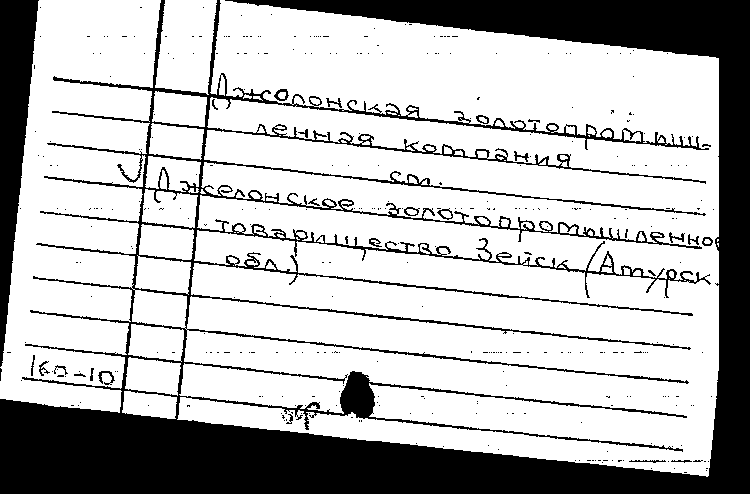 Джолонская золотопромыш-
ленная компания
см.
Джелонское золотопромышленное
товарищество. Зейск (Амурск.
обл.)
160-10